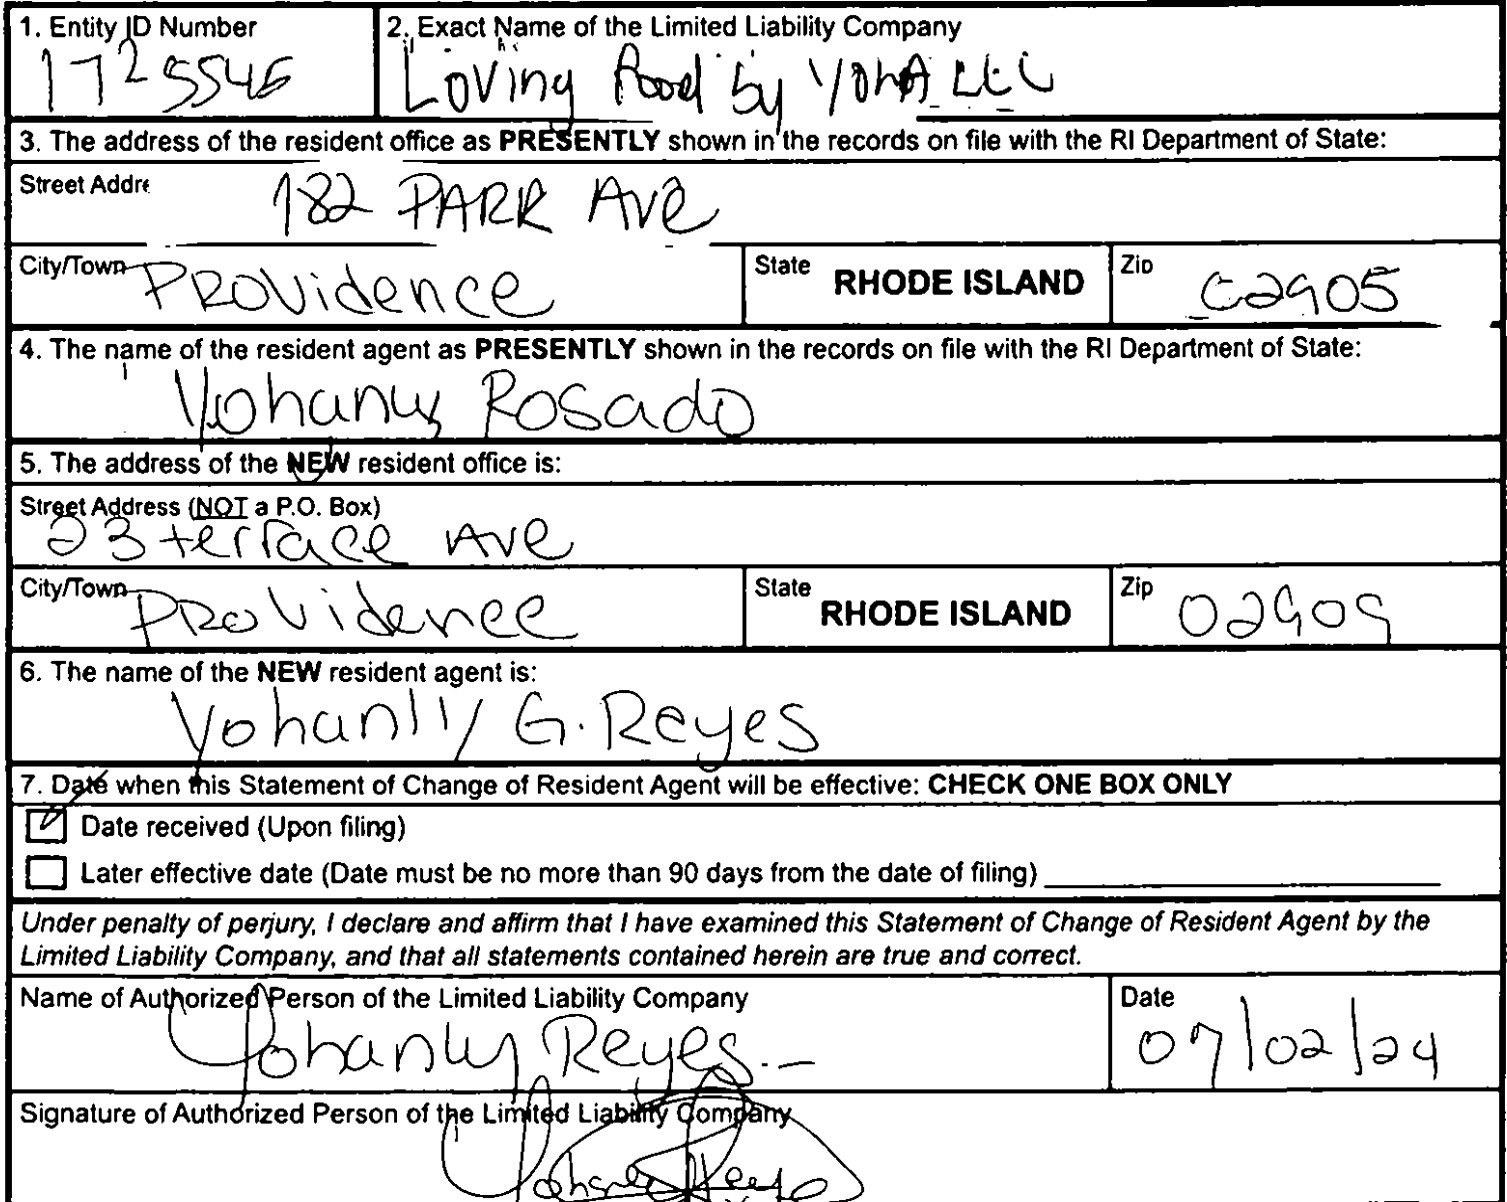 1. Entity ID Number
1725546
2. Exact Name of the Limited Liability Company
Loving Food by YohA LLC
3. The address of the resident office as PRESENTLY shown in the records on file with the RI Department of State:
Street Addre
182 PARK Ave
City/Town
PROVidence
State
RHODE ISLAND
Zip
02905
4. The name of the resident agent as PRESENTLY shown in the records on file with the RI Department of State:
Yohanly Rosado
5. The address of the NEW resident office is:
Street Address (NOT a P.O. Box)
23 terrace Ave
City/Town
PROVidence
State
RHODE ISLAND
Zip
02909
6. The name of the NEW resident agent is:
Yohanlly G. Reyes
7. Date when this Statement of Change of Resident Agent will be effective: CHECK ONE BOX ONLY
Date received (Upon filing)
Later effective date (Date must be no more than 90 days from the date of filing)
Under penalty of perjury, I declare and affirm that I have examined this Statement of Change of Resident Agent by the
Limited Liability Company, and that all statements contained herein are true and correct.
Name of Authorized Person of the Limited Liability Company
Yohanly Reyes.
Date
07/02/24
Signature of Authorized Person of the Limited Liability Company